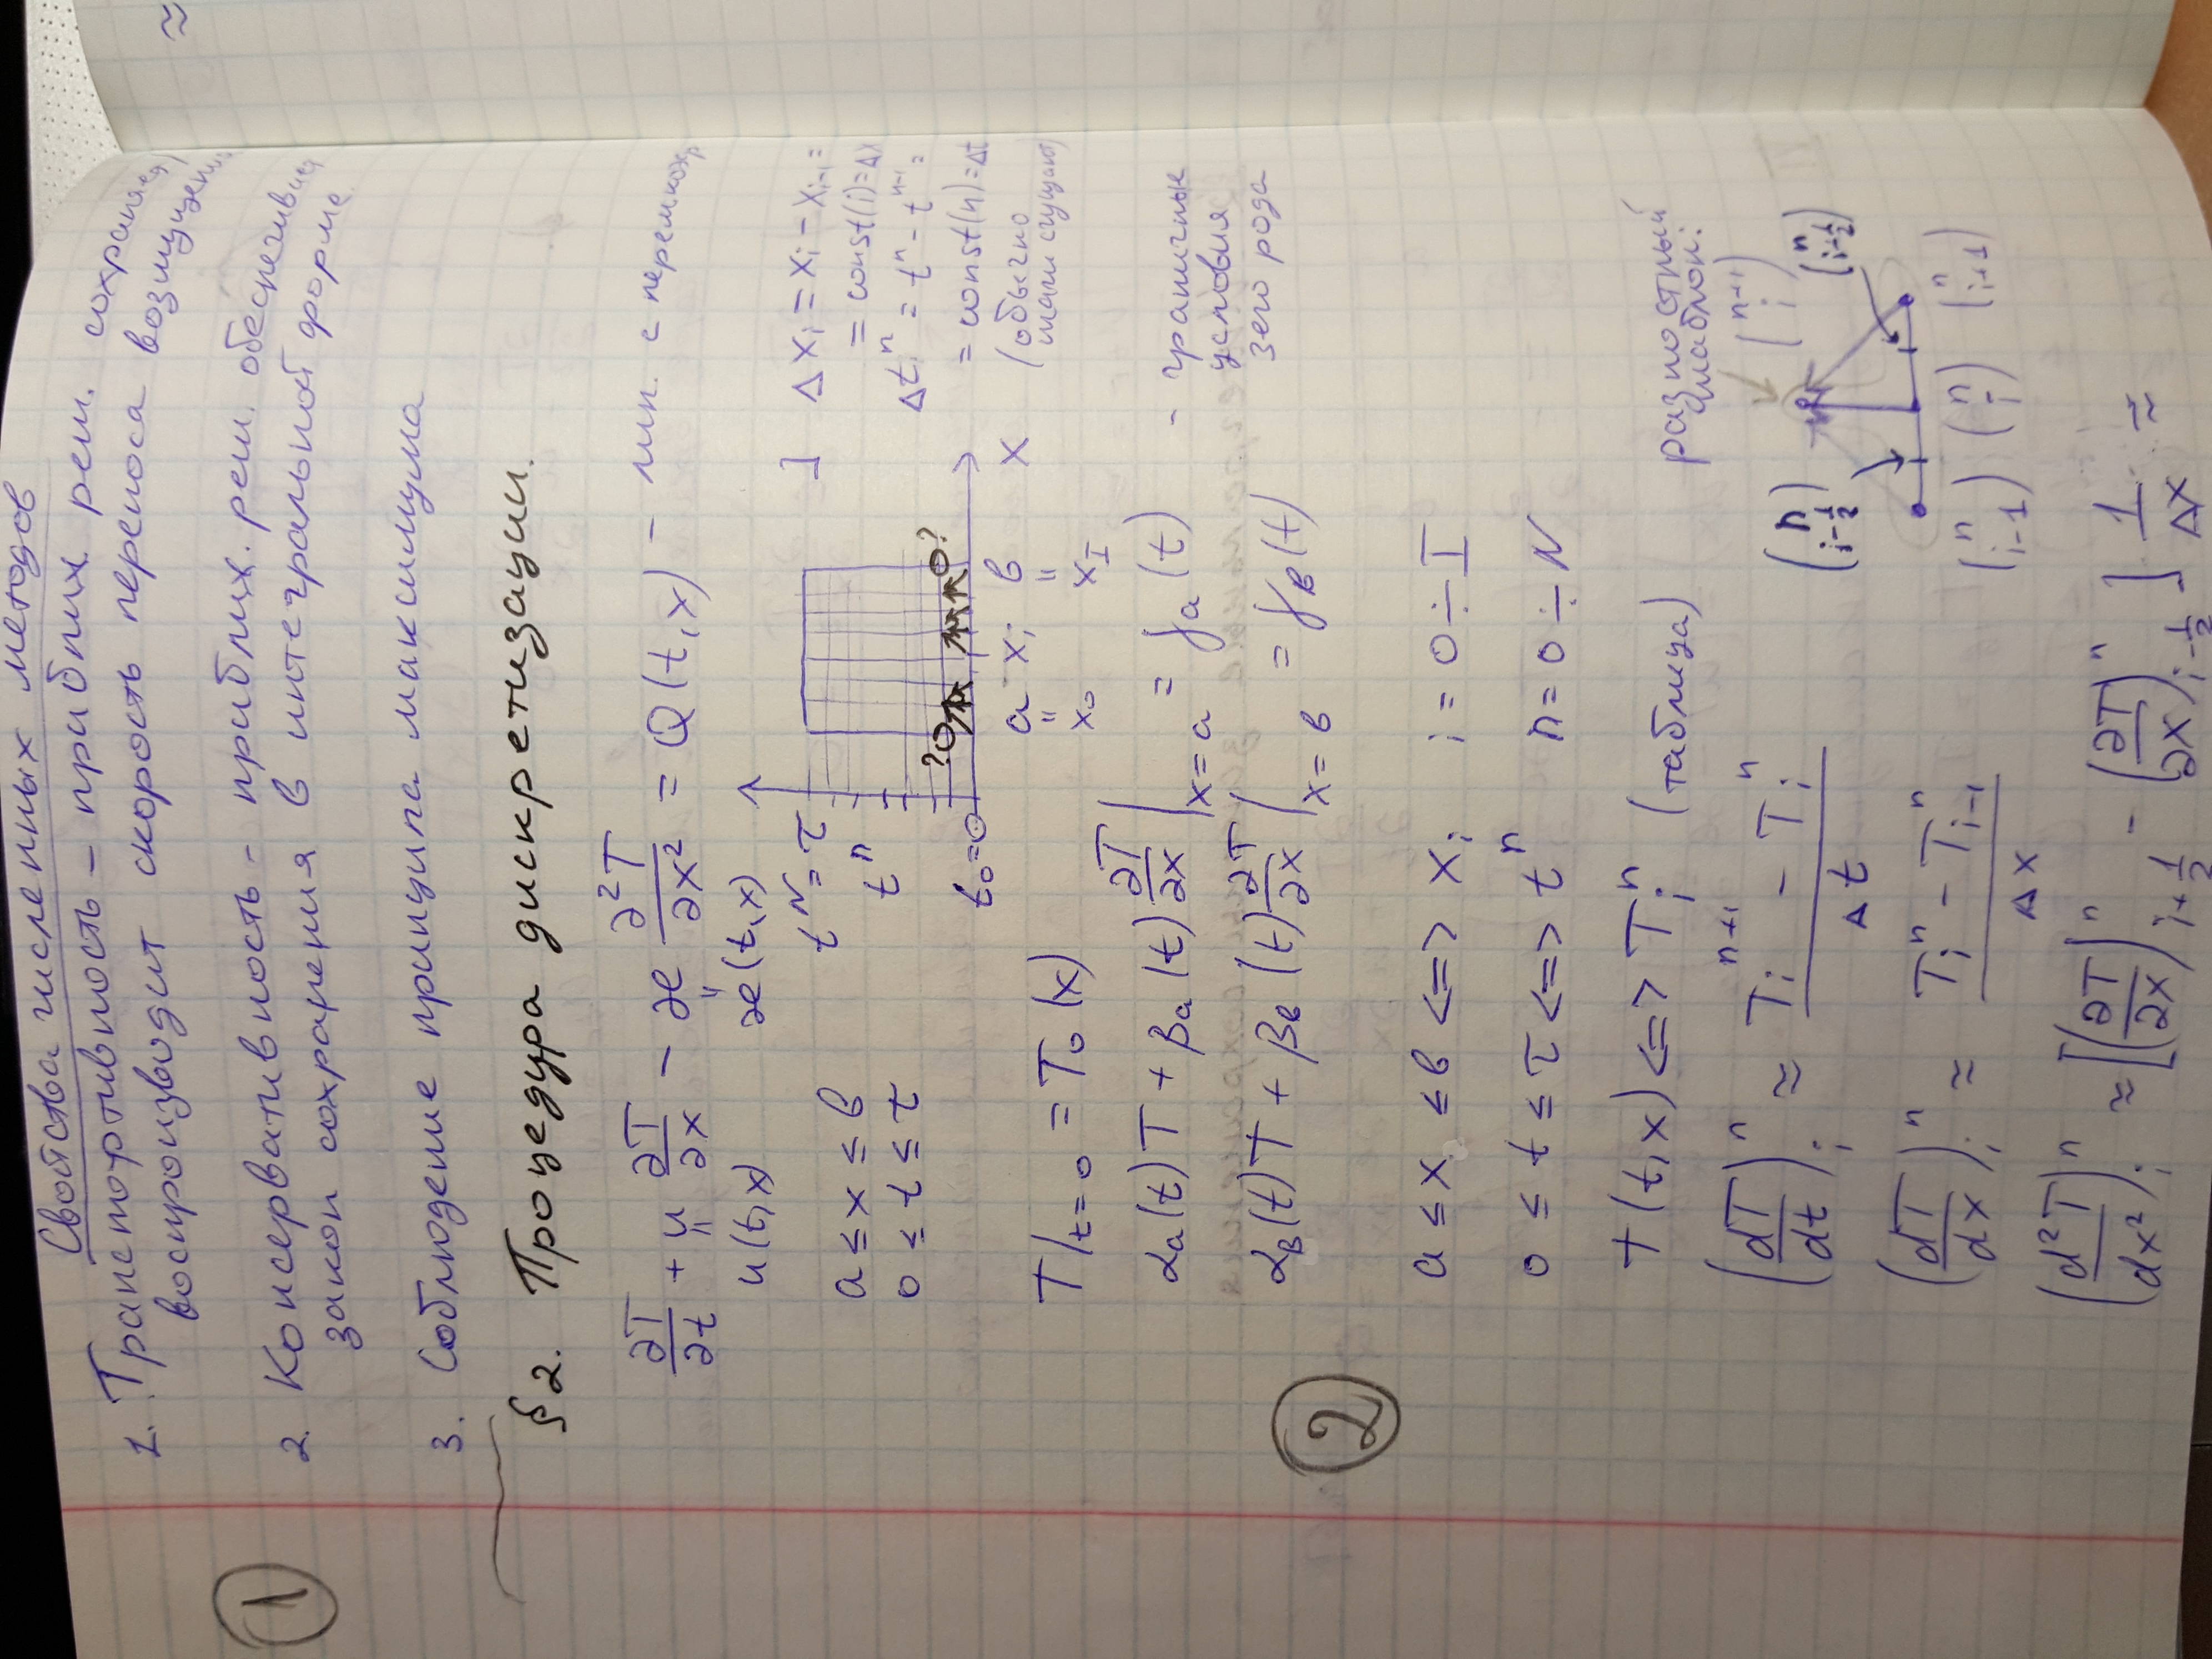 Свойства численных методов
1. Транспортивность – приближ. реш. сохраняя/
воспроизводит скорость переноса возмущений
①
2. Консервативность – приближ. реш. обеспечивает
закон сохранения в интегральной форме.
3. Соблюдение принципа максимума
§2. Процедура дискретизации.
∂T/∂t + u ∂T/∂x − æ ∂²T/∂x² = Q(t,x) – лин. с перем. коэф
u(t,x) æ(t,x)
a ≤ x ≤ b
0 ≤ t ≤ τ
t^N = τ
t^n
t_0 = 0
? ?
a x_i b x
" "
x_0 x_I
] Δx_i = x_i − x_{i−1} =
= const(i) = Δx
Δt_i^n = t^n − t^{n−1} =
= const(n) = Δt
(обычно
шаги сгущают)
T|_{t=0} = T_0(x)
α_a(t)T + β_a(t) ∂T/∂x |_{x=a} = γ_a(t)
α_в(t)T + β_в(t) ∂T/∂x |_{x=в} = γ_в(t)
– граничные
условия
3его рода
②
a ≤ x ≤ в <=> x_i i = 0 ÷ I
0 ≤ t ≤ τ <=> t^n n = 0 ÷ N
T(t,x) <=> T_i^n (таблица)
разностный
шаблон:
(dT/dt)_i^n ≈ (T_i^{n+1} − T_i^n)/Δt
(n+1 i)
(n i−1/2) (n i−1/2)
(dT/dx)_i^n ≈ (T_i^n − T_{i−1}^n)/Δx
(n i−1) (n i) (n i+1)
(d²T/dx²)_i^n ≈ [(∂T/∂x)_{i+1/2}^n − (∂T/∂x)_{i−1/2}^n] 1/Δx ≈
≈